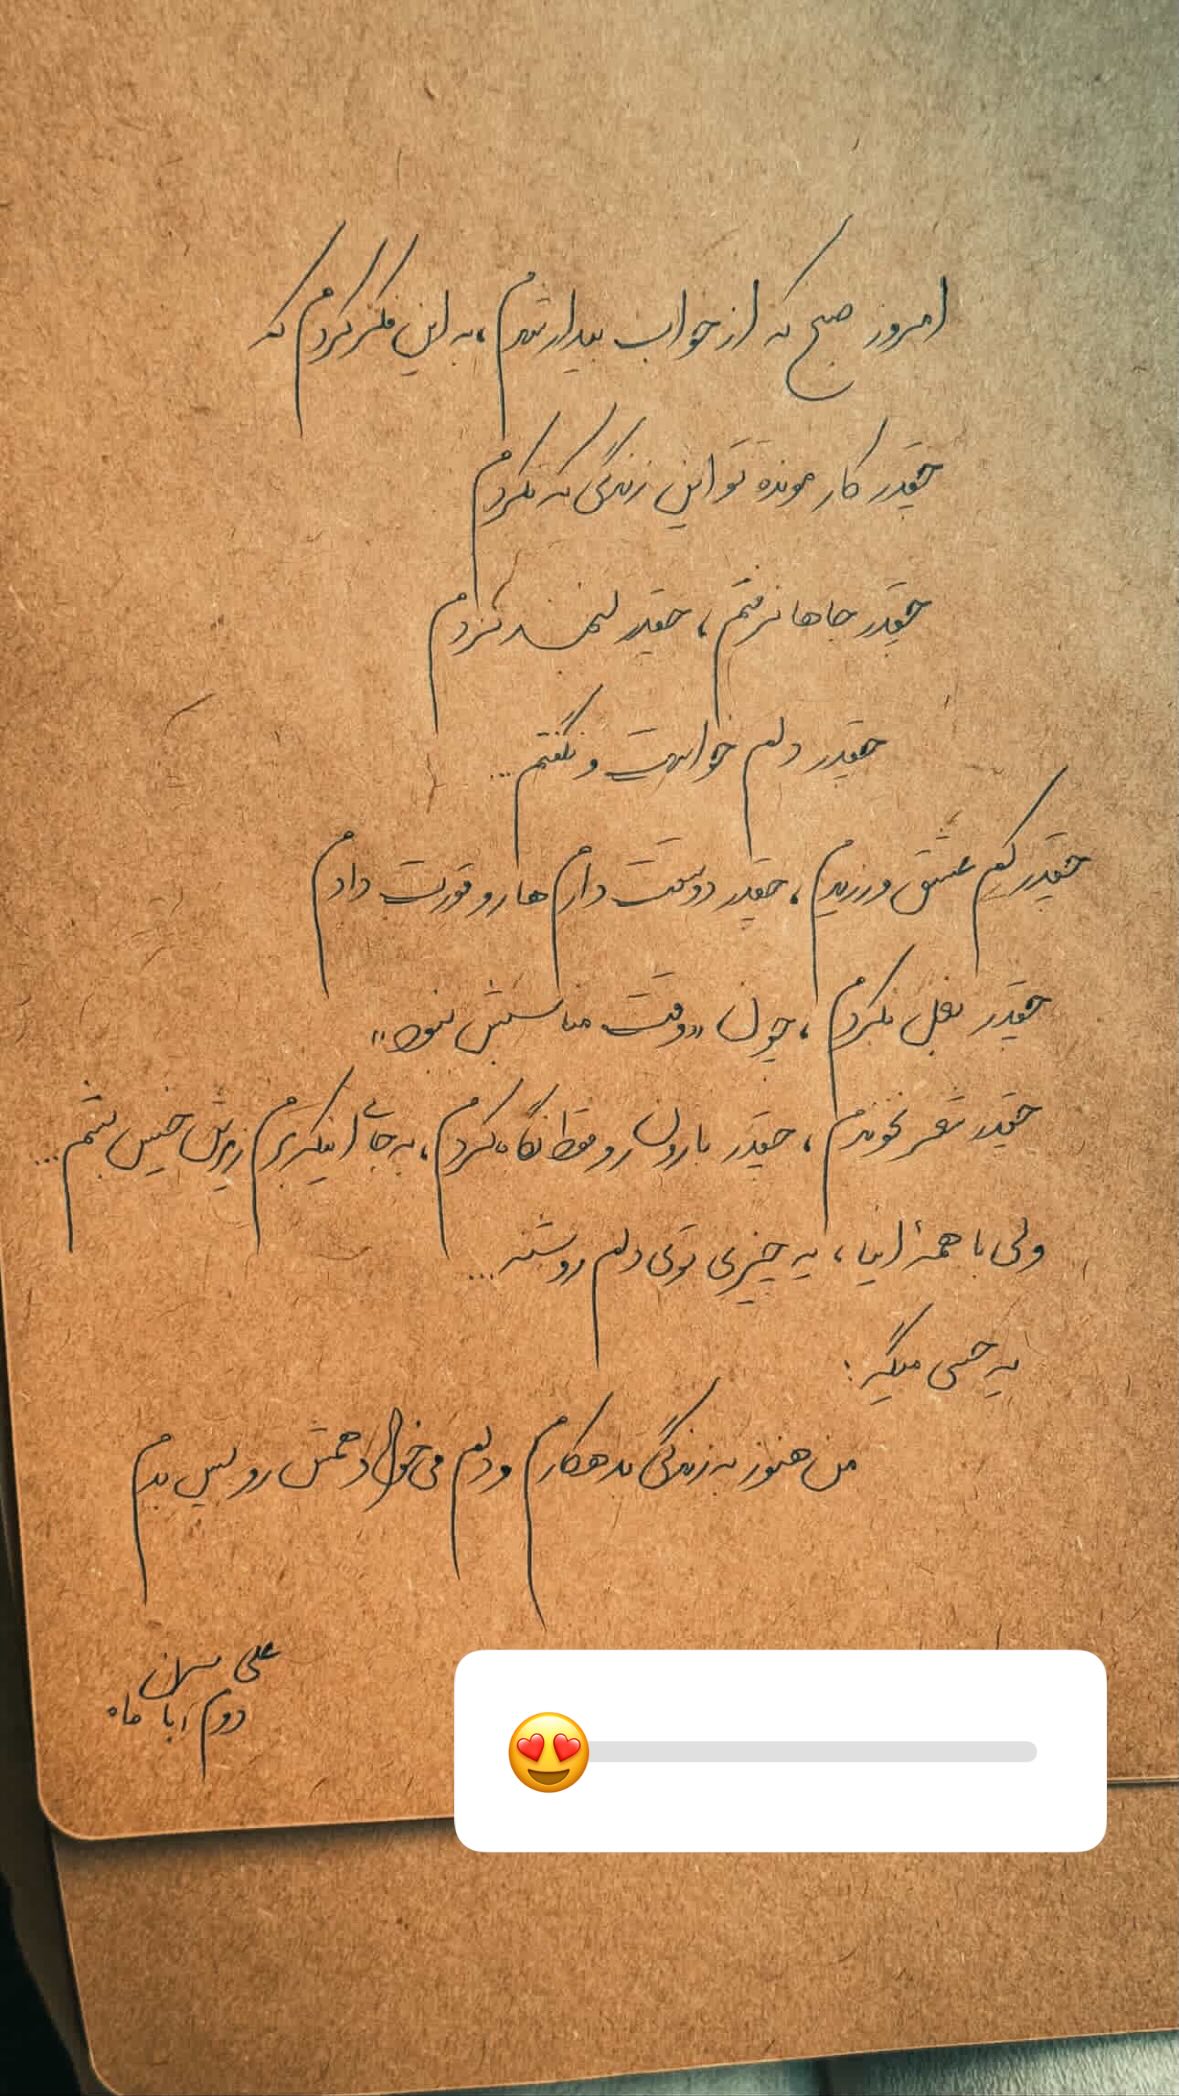 امروز صبح که از خواب بیدار شدم ، به این فکر کردم که
چقدر کار مونده تو این زندگی که نکردم
چقدر جاها نرفتم ، چقدر لبخند نزدم
چقدر دلم خواست و نگفتم ...
چقدر کم عشق ورزیدم ، چقدر دوستت دارم ها رو قورت دادم
چقدر بغل نکردم ، چون «وقت مناسبش نبود»
چقدر شعر نخوندم ، چقدر بارون رو فقط نگاه کردم ، به جای اینکه برم زیرش خیس بشم ...
ولی با همۀ اینا ، یه چیزی توی دلم روشنه ...
یه حسی میگه :
من هنوز به زندگی بدهکارم و دلم می‌خواد همش رو پس بدم
علی
دوم آبا ماه